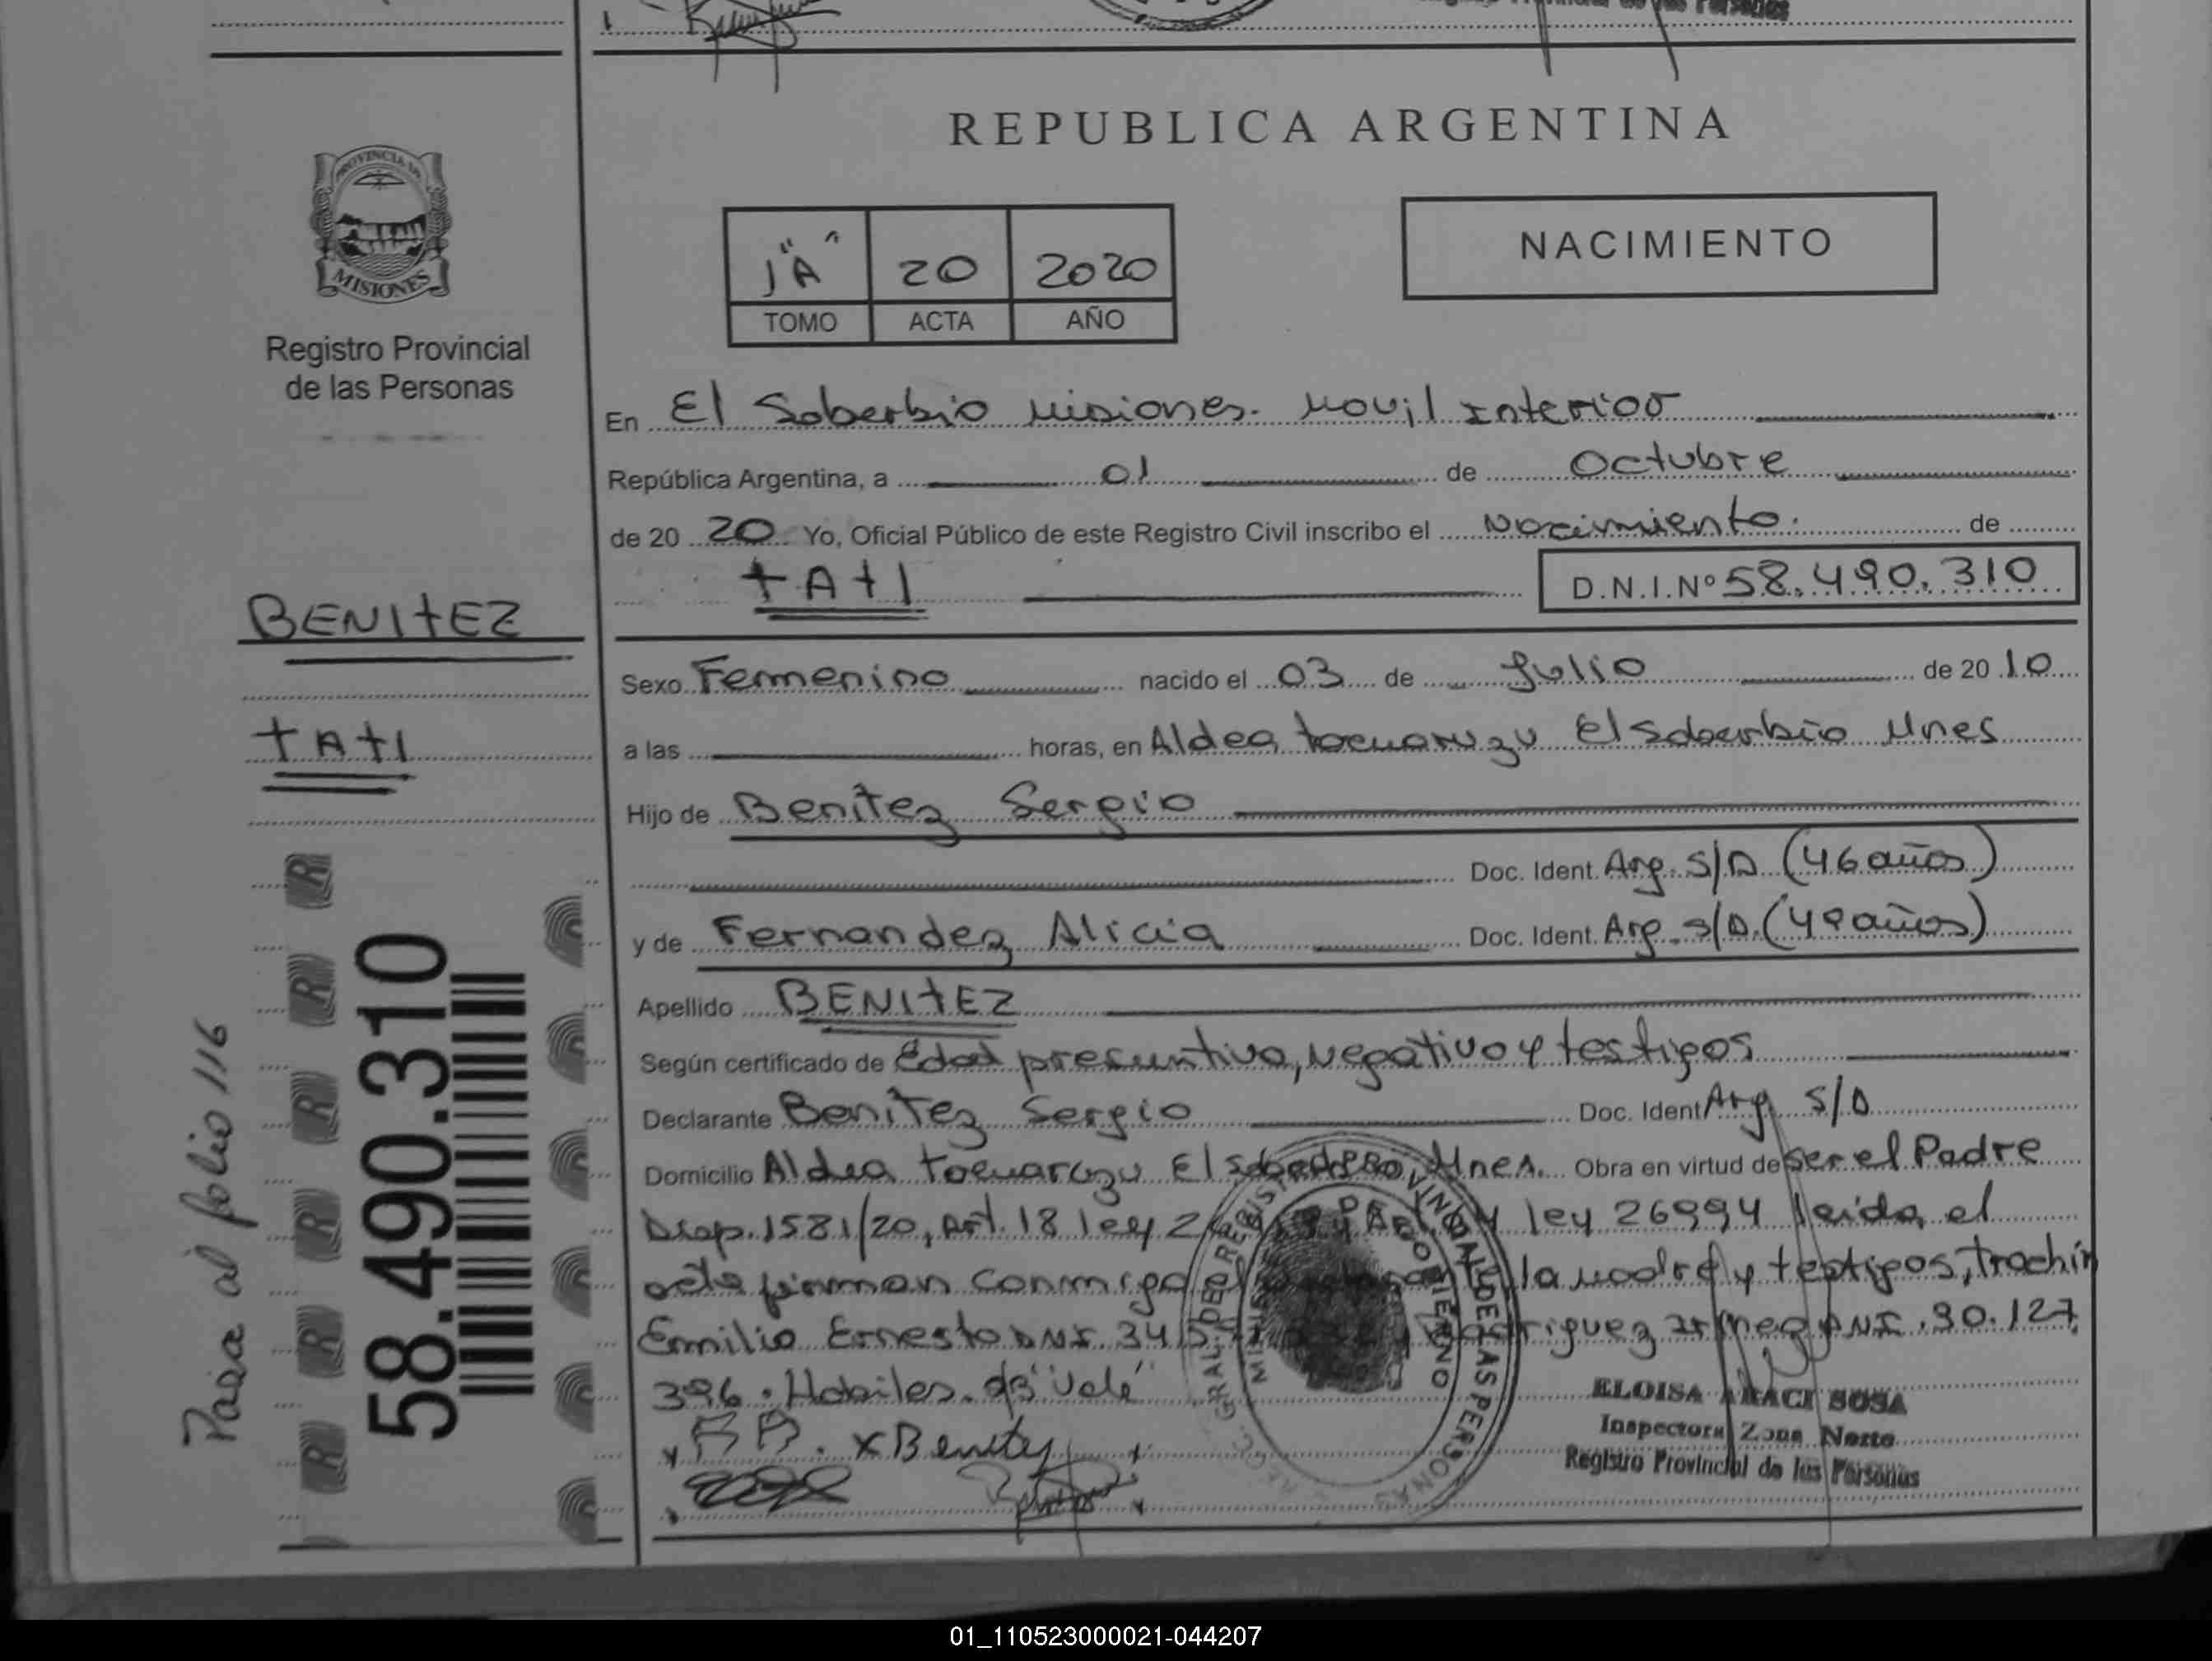 REPUBLICA ARGENTINA
PROVINCIA DE
MISIONES
Registro Provincial
de las Personas
1"A"
20
2020
TOMO
ACTA
AÑO
NACIMIENTO
En El Soberbio Misiones. Movil Interior
República Argentina, a 01 de Octubre
de 20 20 Yo, Oficial Público de este Registro Civil inscribo el Nacimiento. de
tAtI
D.N.I.Nº 58.490.310
BENItEZ
tAtI
Sexo Femenino nacido el 03 de Julio de 20 10
a las horas, en Aldea El Soberbio Mnes
Hijo de Benitez Sergio
Doc. Ident. Arg. S/D (46 años)
y de Fernandez Alicia Doc. Ident. Arg. S/D. (49 años)
Apellido BENItEZ
Según certificado de Edad presuntiva, negativo y testigos
Declarante Benitez Sergio Doc. Ident Arg S/D
Domicilio Aldea El Mnes. Obra en virtud de ser el Padre
Disp. 1581/20, Art. 18 ley ley 26994 leida el
acta firman conmigo la madre y testigos, trochin
Emilio Ernesto DNI. 34 DNI. 30.127
396. Habiles. "Vale"
x Benitez
ELOISA ARACI SOSA
Inspectora Zona Norte
Registro Provincial de las Personas
Pasa al folio 116
58.490.310
01_110523000021-044207